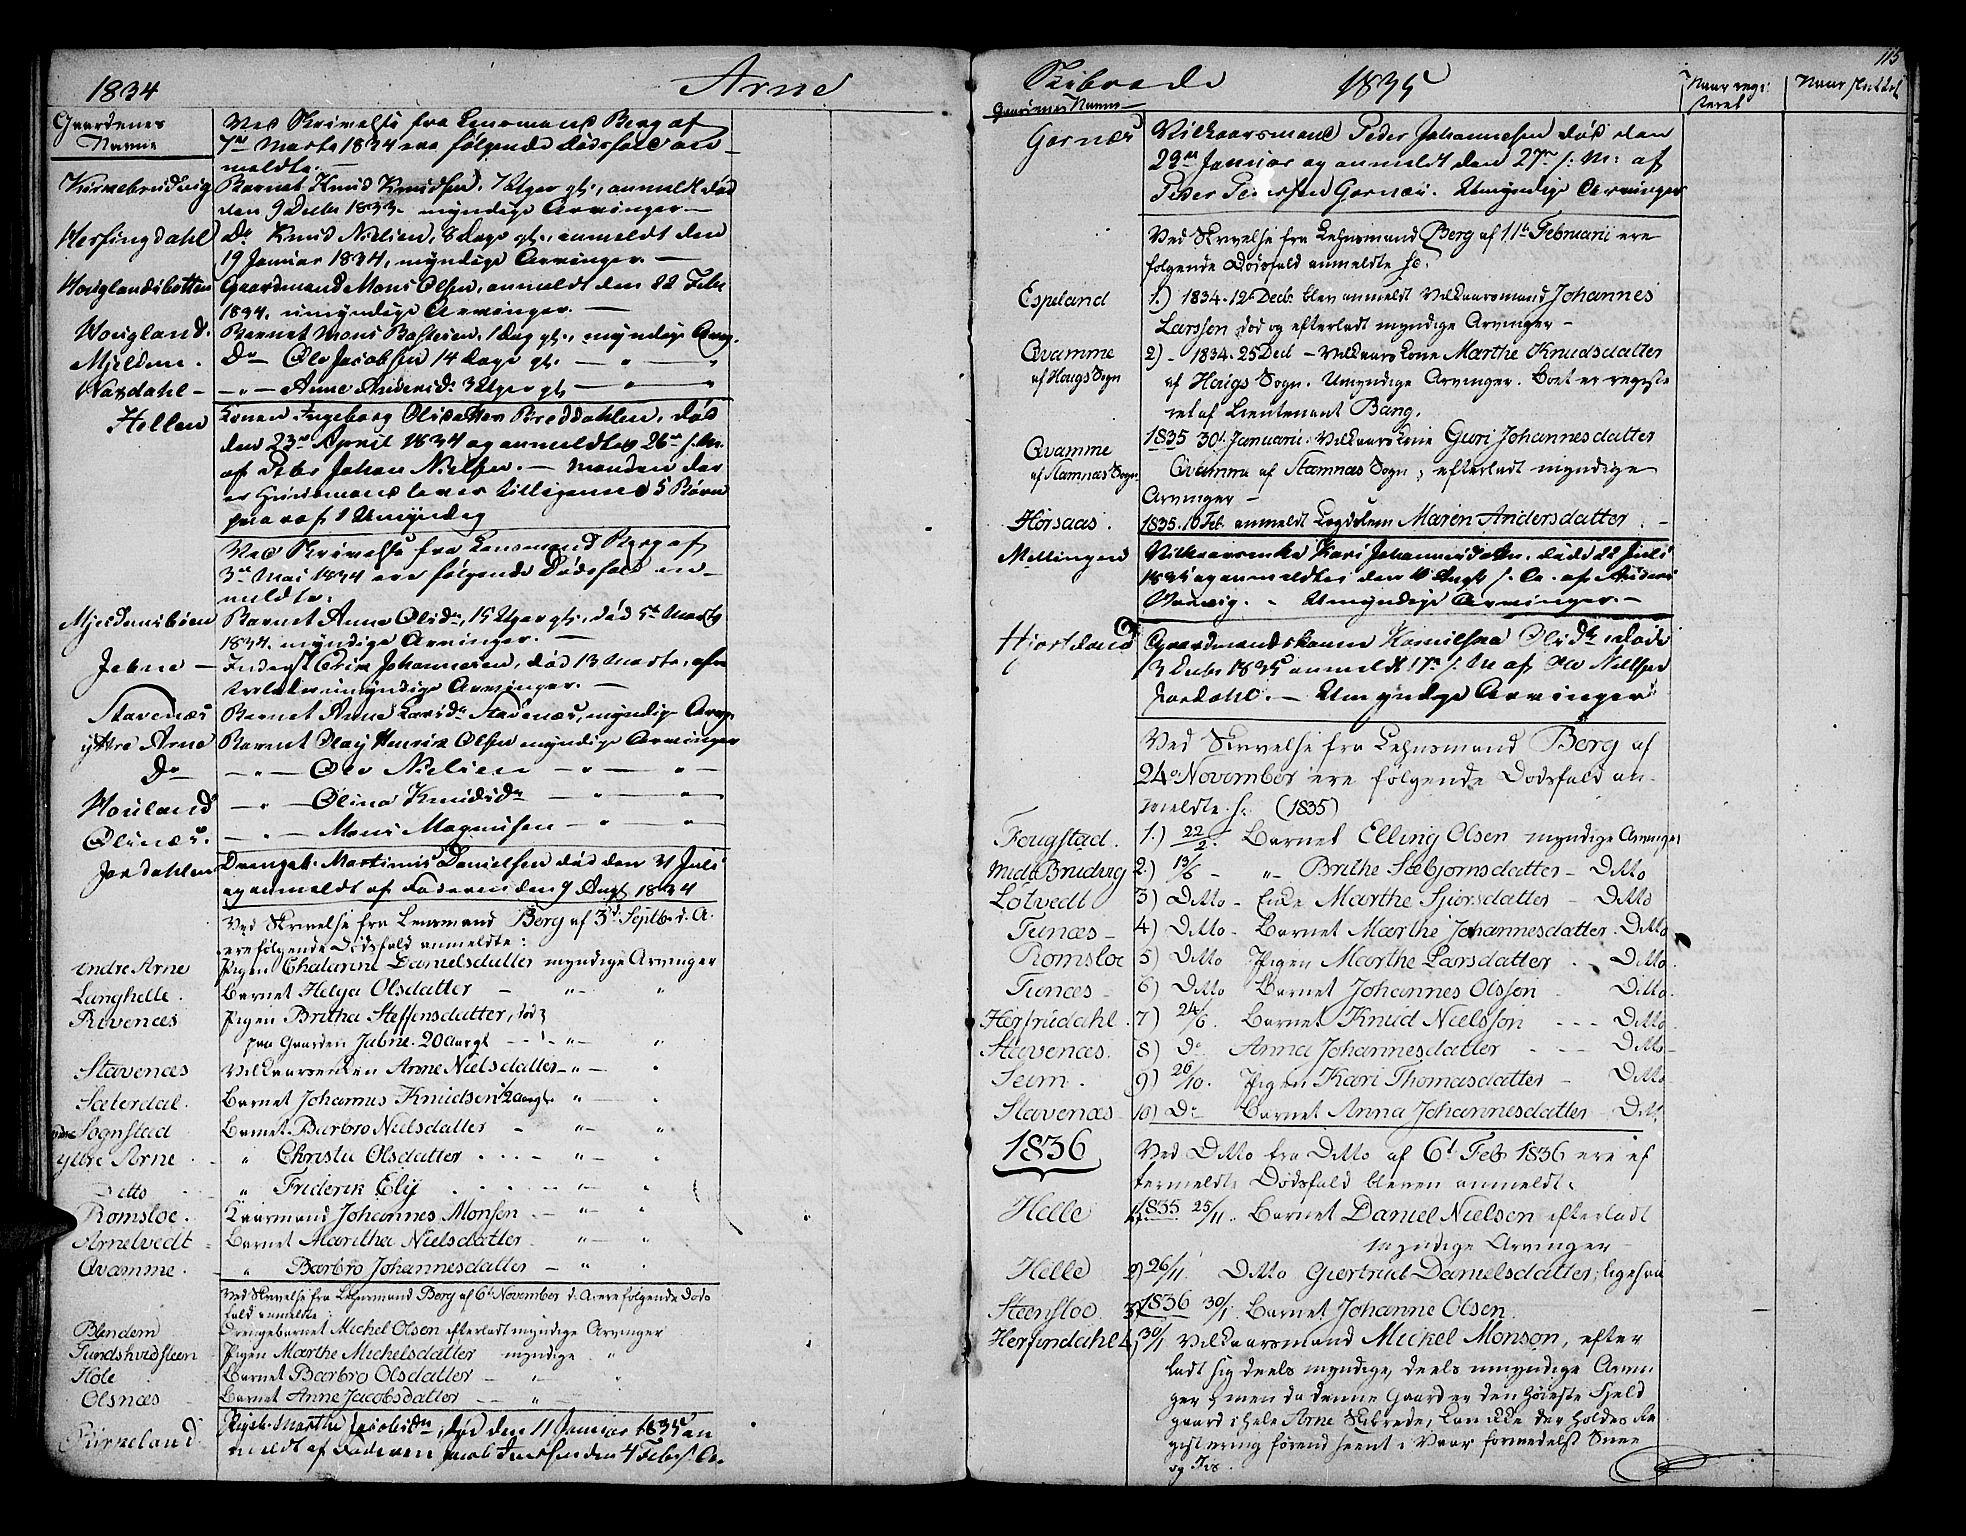 1834 Arne
Gaardenes Navne
Ved Skrivelse fra Lensmand Berg af
7de Marts 1834 ere følgende dødsfald an-
meldte:
Barnet Knud Knudsen, Uger gl., anmeldt død
den 9 Decbr 1833. myndige Arvinger -
Do Knud Nielsen, 8 Dage gl., anmeldt den
19 Januar 1834, myndige Arvinger. -
Houglandsbotten Gaardmand Mons Olsen, anmeldt den 22 Febr
1834. umyndige Arvinger. -
Hougland. Barnet Mons Bastesen, 1 Dag gl., myndige Arv.
Mjeldem. Do Ole Jacobsen 14 Dage gl. - " - "
- " - Anne Andersd. 3 Uger gl. - " - "
Hellen Konen Ingeborg Olsdatter Breddahlen, død
den 23de April 1834 og anmeldt 26de s. M.
af Peder Johan Nielsen. - Manden der
er Huusmand lever tilligemed 5 Børn
hvoraf 1 Umyndig
Ved Skrivelse fra Lensmand Berg af
3de Mai 1834 ere følgende Dødsfald an-
meldte:
Barnet Anne Olsdr, 15 Uger gl., død 5te Marts
1834. myndige Arvinger. -
Jebne - Inderst Erik Johannesen, død 13 Marts, efter
umyndige Arvinger. -
Stavenæs Barnet Anne Larsdr Stavenæs, myndige Arv.
ytre Arne Barnet Olay Henrik Olsen myndige Arvinger
Do - " - Ole Nielsen - " - "
Houland - " - Olina Knudsdr - " - "
Olsnæs. - " - Mons Magnusen - " - "
Jordahlen Drengen Martinus Danielsen død den 31 Juli
og anmeldt af Faderen den 9 Augt 1834
Ved Skrivelse fra Lensmand Berg af 3d Septbr d. A.
ere følgende Dødsfald anmeldte:
indre Arne Pigen Chatarine Danielsdatter myndige Arvinger
Langhelle. Barnet Helga Olsdatter - " - "
Rivenæs Pigen Britha Steffensdatter, død
paa Gaarden Jabne. 20 aar gl - " - "
Stavenæs Vilkaarsenken Anne Nielsdatter - " - "
Sæterdal. Barnet Johannes Knudsen 1/2 aar gl. " - "
Sognstad Barnet Barbro Nielsdatter - " - "
ytre Arne. " Christa Olsdatter - " - "
Ditto " Friderik Elis - " - "
Romsloe. Kaarmand Johannes Monsen - " - "
Arnetvedt Barnet Maritha Nielsdatter - " - "
Qvamme. " Barbro Johannesdatter - " - "
Ved Skrivelse fra Lehnsmand Berg af 6te November d. A. ere følgende Døds
fald anmeldte:
Blendem Drengebarnet Michel Olsen efterladt myndige Arvinger
Pigen Marthe Michelsdatter myndige "
Hole Barnet Barbro Olsdatter - "
Olsnæs Barnet Anne Jacobsdatter - "
Marthe Jacobsdr, død den 11 Januar 1835 an
meldt af Faderen Jacob den 4 Febr s. A.
Skibrede 1835 115
Gaardenes Navne Naar regi-
steret Naar sluttet
Garnæs Vilkaarsmand Peder Johannesen død den
29de Januar og anmeldt den 27de s. M. af
Peder Pedersen Garnæs. Umyndige Arvinger
Ved Skrivelse fra Lehnsmand Berg af 11te Februarii ere
følgende Dødsfald anmeldte
Espeland 1.) 1834. 12te Decbr blev anmeldt Vilkaarsmand Johannes
Larssøn død og efterladt myndige Arvinger -
Qvamme
af Hougs Sogn 2) - 1834. 25 Decb - Vilkaars Kone Marthe Knudsdatter
af Hougs Sogn. Umyndige Arvinger. Boet er registe
ret af Lieutenant Bang.
Qvamme
af Stamnæs Sogn. 1835 30te Januarii. Vilkaars Kone Guri Johannesdatter
Qvamme af Stamnæs Sogn; efterladt myndige
Arvinger -
Hørsaas. 1835. 10 Feb. anmeldt Lægdslem Maren Andersdatter. -
Mellingen Kari Johannesdatter død 22 Juli
1835 og anmeldtes den Augt s. A. af Anders
- Umyndige Arvinger. -
Hjortland Gaardmandskonen Olsdr døde
3 Decbr 1835 anmeldt 17de s. M af Ole Nielsen
Jordahl. - Umyndige Arvinger
Ved Skrivelse fra Lehnsmand Berg af
24de November ere følgende Dødsfald an-
meldte (1835)
Fougstad. 1.) 22/2. Barnet Elling Olsen myndige Arvinger
Midt Brudvig 2.) 13/6 - " Brithe Sæbjørnsdatter - Ditto
Løtvedt 3) Ditto - Enke Marthe Sjursdatter - Ditto
Tunæs - 4) Ditto - Barnet Marthe Johannesdatter. Ditto
Romsloe 5) Ditto Pigen Marthe Larsdatter - Ditto.
Tunæs - 6) Ditto Barnet Johannes Olsson - Ditto.
Herfindahl. 7) 24/6. Barnet Knud Nielsson - - - Ditto
Stavenæs. 8) Do Anna Johannesdatter - - Ditto -
Seim. 9) 26/10. Pigen Kari Thomasdatter - Ditto
Stavenæs 10) Do Barnet Anna Johannesdatter - Ditt.
1836 Ved Ditto fra Ditto af 6t Feb 1836 ere ef
termeldte Dødsfald bleven anmeldt.
Helle 1. 1835 25/11. Barnet Daniel Nielsen efterladt
myndige Arvinger -
Helle 2) 26/11 Ditto Giertrud Danielsdatter; ligesaa
Steensloe 3. 1836 30/1 Barnet Johanne Olsen.
Herfindahl 4. 30/1 Vilkaarsmand Mickel Monson, efter
ladt sig deels myndige, deels umyndige Arvin
ger; men da denne Gaard er den høieste Fjeld
gaard i hele Arne Skibrede, kan ikke der holdes Re
gistrering førend seent i Vaar formedelst Snee
og Iis.